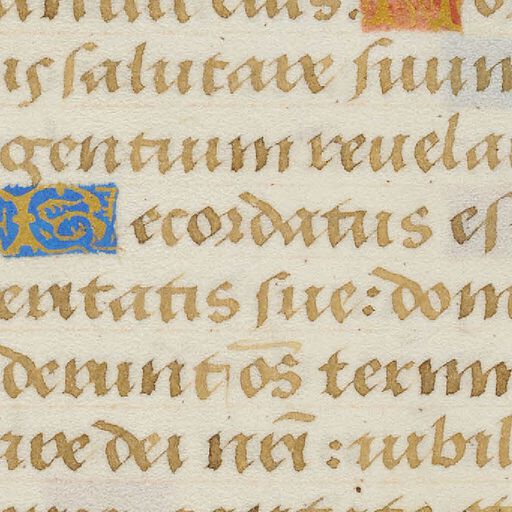 is salutare suum
gentium reuela
Recordatus es
eritatis sue: dom
derunt o̅s termin
are dei nr̅i : iubil